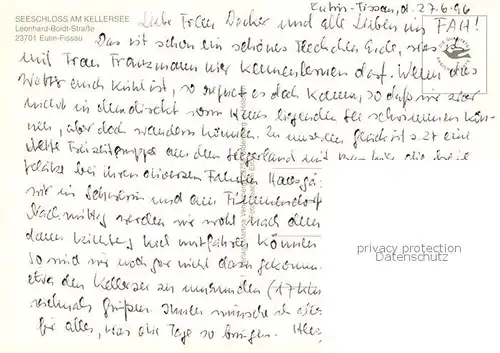 SEESCHLOSS AM KELLERSEE
Leonhard-Boldt-Straße
23701 Eutin-Fissau
Eutin-Fissau, d. 27.6.96
Liebe Frau Decker und alle Lieben im FAH!
Das ist schon ein schönes Fleckchen Erde, was ich
mit Frau Franzmann hier kennenlernen darf. Wenn das
Wetter auch kühl ist, so regnet es doch kaum, so daß wir zwar
nicht in dem direkt vorm Haus liegenden See schwimmen kön-
nen, aber doch wandern können. Zu unserem Glück ist z.Zt eine
nette Freizeitgruppe aus dem Siegerland mit
Plätze bei ihren diversen Fahrten
wir in Schwerin und am Timmendorf
Nachmittag werden wir wohl nach dem
dann richtig mitfahren können
So sind wir noch gar nicht dazu gekommen
etwa den Kellersee zu umrunden (17 km
vielmals grüßen. Ihnen wünsche ich alles
für alles, was die Tage so bringen. Ihre
privacy protection
Ansichtskarten-Center.de